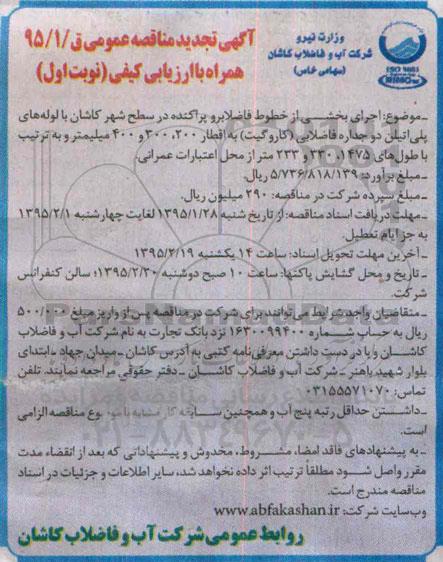 وزارت نیرو
شرکت آب و فاضلاب کاشان
(سهامی خاص)
آگهی تجدید مناقصه عمومی ق/۹۵/۱
همراه با ارزیابی کیفی (نوبت اول)
ISO 9001
ـ موضوع: اجرای بخشی از خطوط فاضلابرو پراکنده در سطح شهر کاشان با لوله‌های
پلی‌اتیلن دو جداره فاضلابی (کاروگیت) به اقطار ۲۰۰، ۳۰۰ و ۴۰۰ میلیمتر و به ترتیب
با طول‌های ۱۴۷۵، ۳۳۰ و ۲۳۳ متر از محل اعتبارات عمرانی.
ـ مبلغ برآورد: ۵/۷۳۶/۸۱۸/۱۳۹ ریال.
ـ مبلغ سپرده شرکت در مناقصه: ۲۹۰ میلیون ریال.
ـ مهلت دریافت اسناد مناقصه: از تاریخ شنبه ۱۳۹۵/۱/۲۸ لغایت چهارشنبه ۱۳۹۵/۲/۱
به جز ایام تعطیل.
ـ آخرین مهلت تحویل اسناد: ساعت ۱۴ یکشنبه ۱۳۹۵/۲/۱۹
ـ تاریخ و محل گشایش پاکتها: ساعت ۱۰ صبح دوشنبه ۱۳۹۵/۲/۲۰؛ سالن کنفرانس
شرکت.
ـ متقاضیان واجد شرایط می‌توانند برای شرکت در مناقصه پس از واریز مبلغ ۵۰۰/۰۰۰
ریال به حساب شماره ۱۶۳۰۰۹۹۴۰۰ نزد بانک تجارت به نام شرکت آب و فاضلاب
کاشان و با در دست داشتن معرفی‌نامه کتبی به آدرس کاشان ـ میدان جهاد ـ ابتدای
بلوار شهید باهنر ـ شرکت آب و فاضلاب کاشان ـ دفتر حقوقی مراجعه نمایند. تلفن
تماس: ۰۳۱۵۵۵۷۱۰۷۰
ـ داشتن حداقل رتبه پنج آب و همچنین سابقه کار مشابه با موضوع مناقصه الزامی
است.
ـ به پیشنهادهای فاقد امضاء، مشروط، مخدوش و پیشنهاداتی که بعد از انقضاء مدت
مقرر واصل شود مطلقاً ترتیب اثر داده نخواهد شد، سایر اطلاعات و جزئیات در اسناد
مناقصه مندرج است.
وب‌سایت شرکت: www.abfakashan.ir
روابط عمومی شرکت آب و فاضلاب کاشان